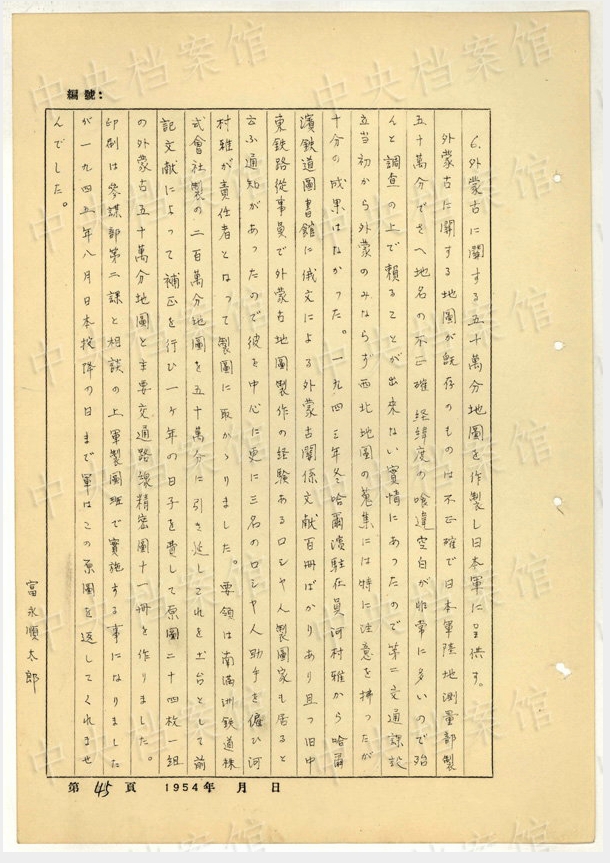 編號:
6.外蒙古に関する五十萬分地圖を作製し日本軍に呈供す。
外蒙古に関する地圖が既存のものは不正確で日本軍陸地測量部製
五十萬分でさへ地名の不正確経緯度の喰違空白が非常に多いので殆
んど調査の上で頼ることが出来ない實情にあったので第二交通課設
立当初から外蒙のみならず西北地圖の蒐集には特に注意を拂ったが
十分の成果はなかった。一九四三年冬哈爾濱駐在員河村雅から哈爾
濱鉄道圖書館に俄文による外蒙古関係文献百冊ばかりあり且つ旧中
東鉄路從事員で外蒙古地圖製作の経験あるロシヤ人製圖家も居ると
云ふ通知があったので彼を中心に更に三名のロシヤ人助手を傭ひ河
村雅が責任者となって製圖に取かゝりました。要領は南滿洲鉄道株
式會社製の二百萬分地圖を五十萬分に引き延しこれを土台として前
記文献によって補正を行ひ一ヶ年の日子を費して原圖二十四枚一組
の外蒙古五十萬分地圖と主要交通路線精密圖十一冊を作りました。
印刷は參謀部第二課と相談の上軍製圖班で實施する事になりました
が一九四五年八月日本投降の日まで軍はこの原圖を返してくれませ
んでした。
富永順太郎
第 45 頁 1954年 月 日
中央档案馆